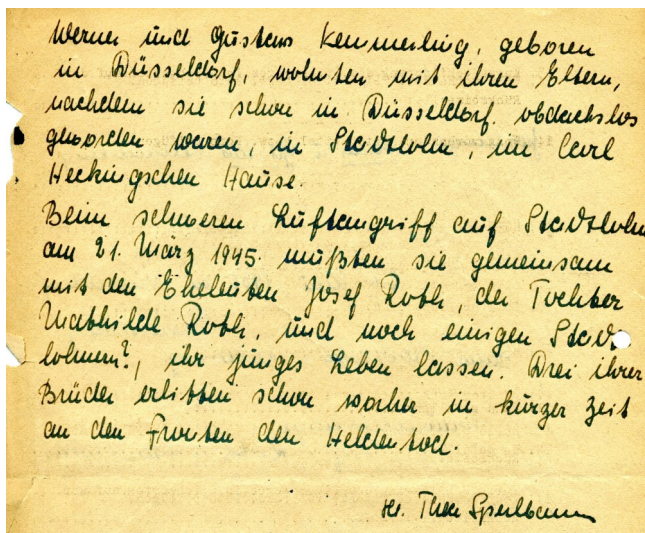 Werner und Gustav Kemmerling, geboren
in Düsseldorf, wohnten mit ihren Eltern,
nachdem sie schon in Düsseldorf obdachslos
geworden waren, in Stadtlohn, im Carl
Heckingschen Hause.
Beim schweren Luftangriff auf Stadtlohn
am 21. März 1945. mußten sie gemeinsam
mit den Eheleuten Josef Roth, der Tochter
Mathilde Roth, und noch einigen Stadt-
lohnern?, ihr junges Leben lassen. Drei ihrer
Brüder erlitten schon vorher in kurzer Zeit
an den Fronten den Heldentod.